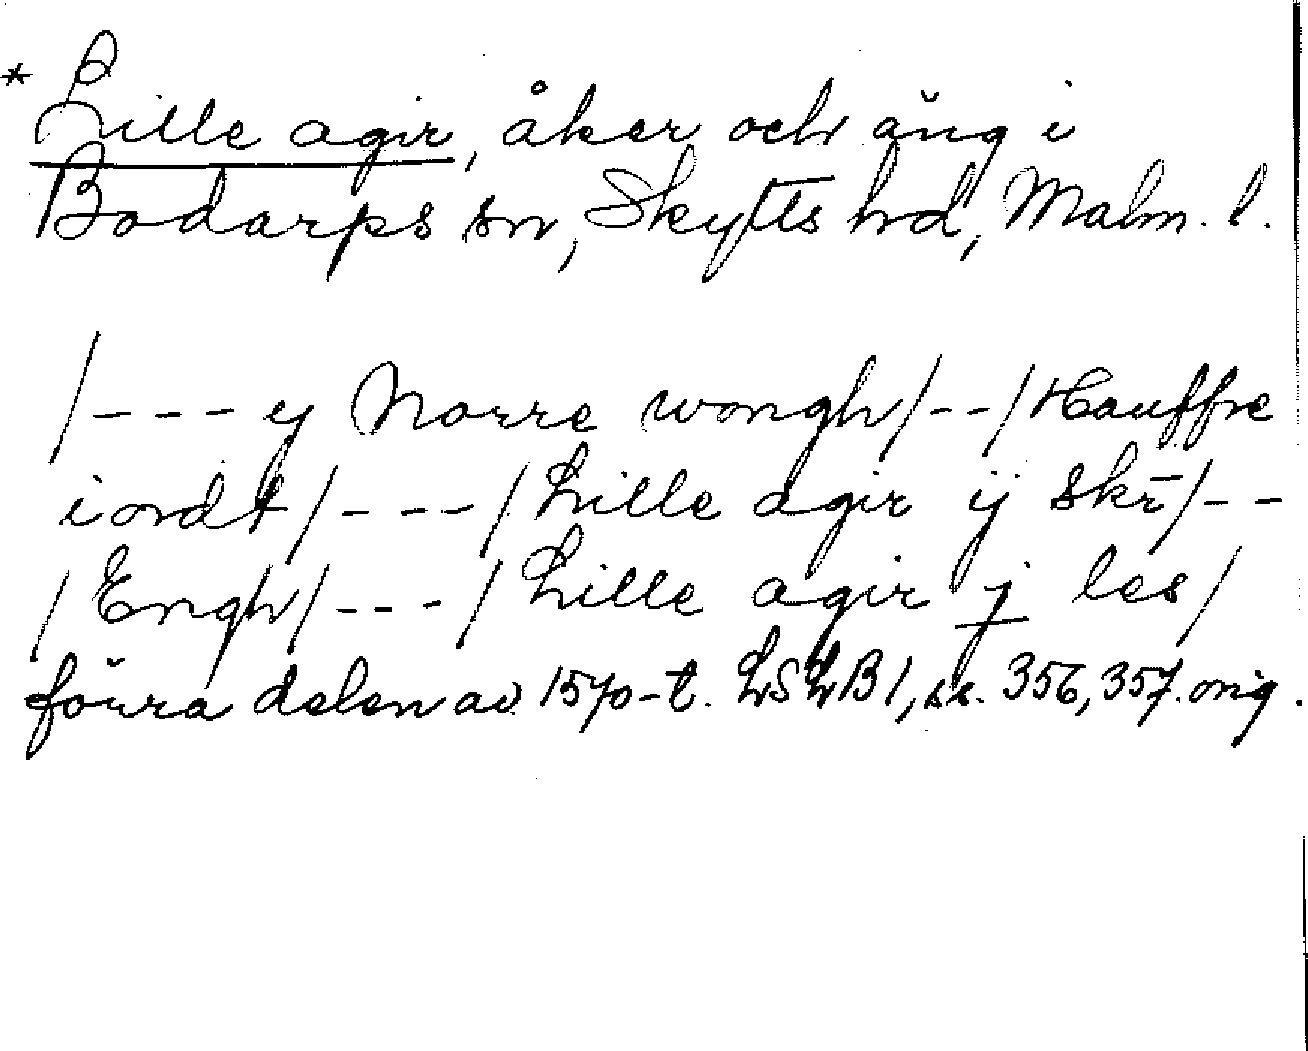 * Lille agir, åker och äng i
Bodarps sn, Skytts hd, Malm. l.
/--- y Norre wongh/--/Hauffre
iordt/---/Lille agir ij skr̄/--
/Engh/---/Lille agir j les/
förra delen av 1570-t. LSLB1, ss. 356, 357. orig.